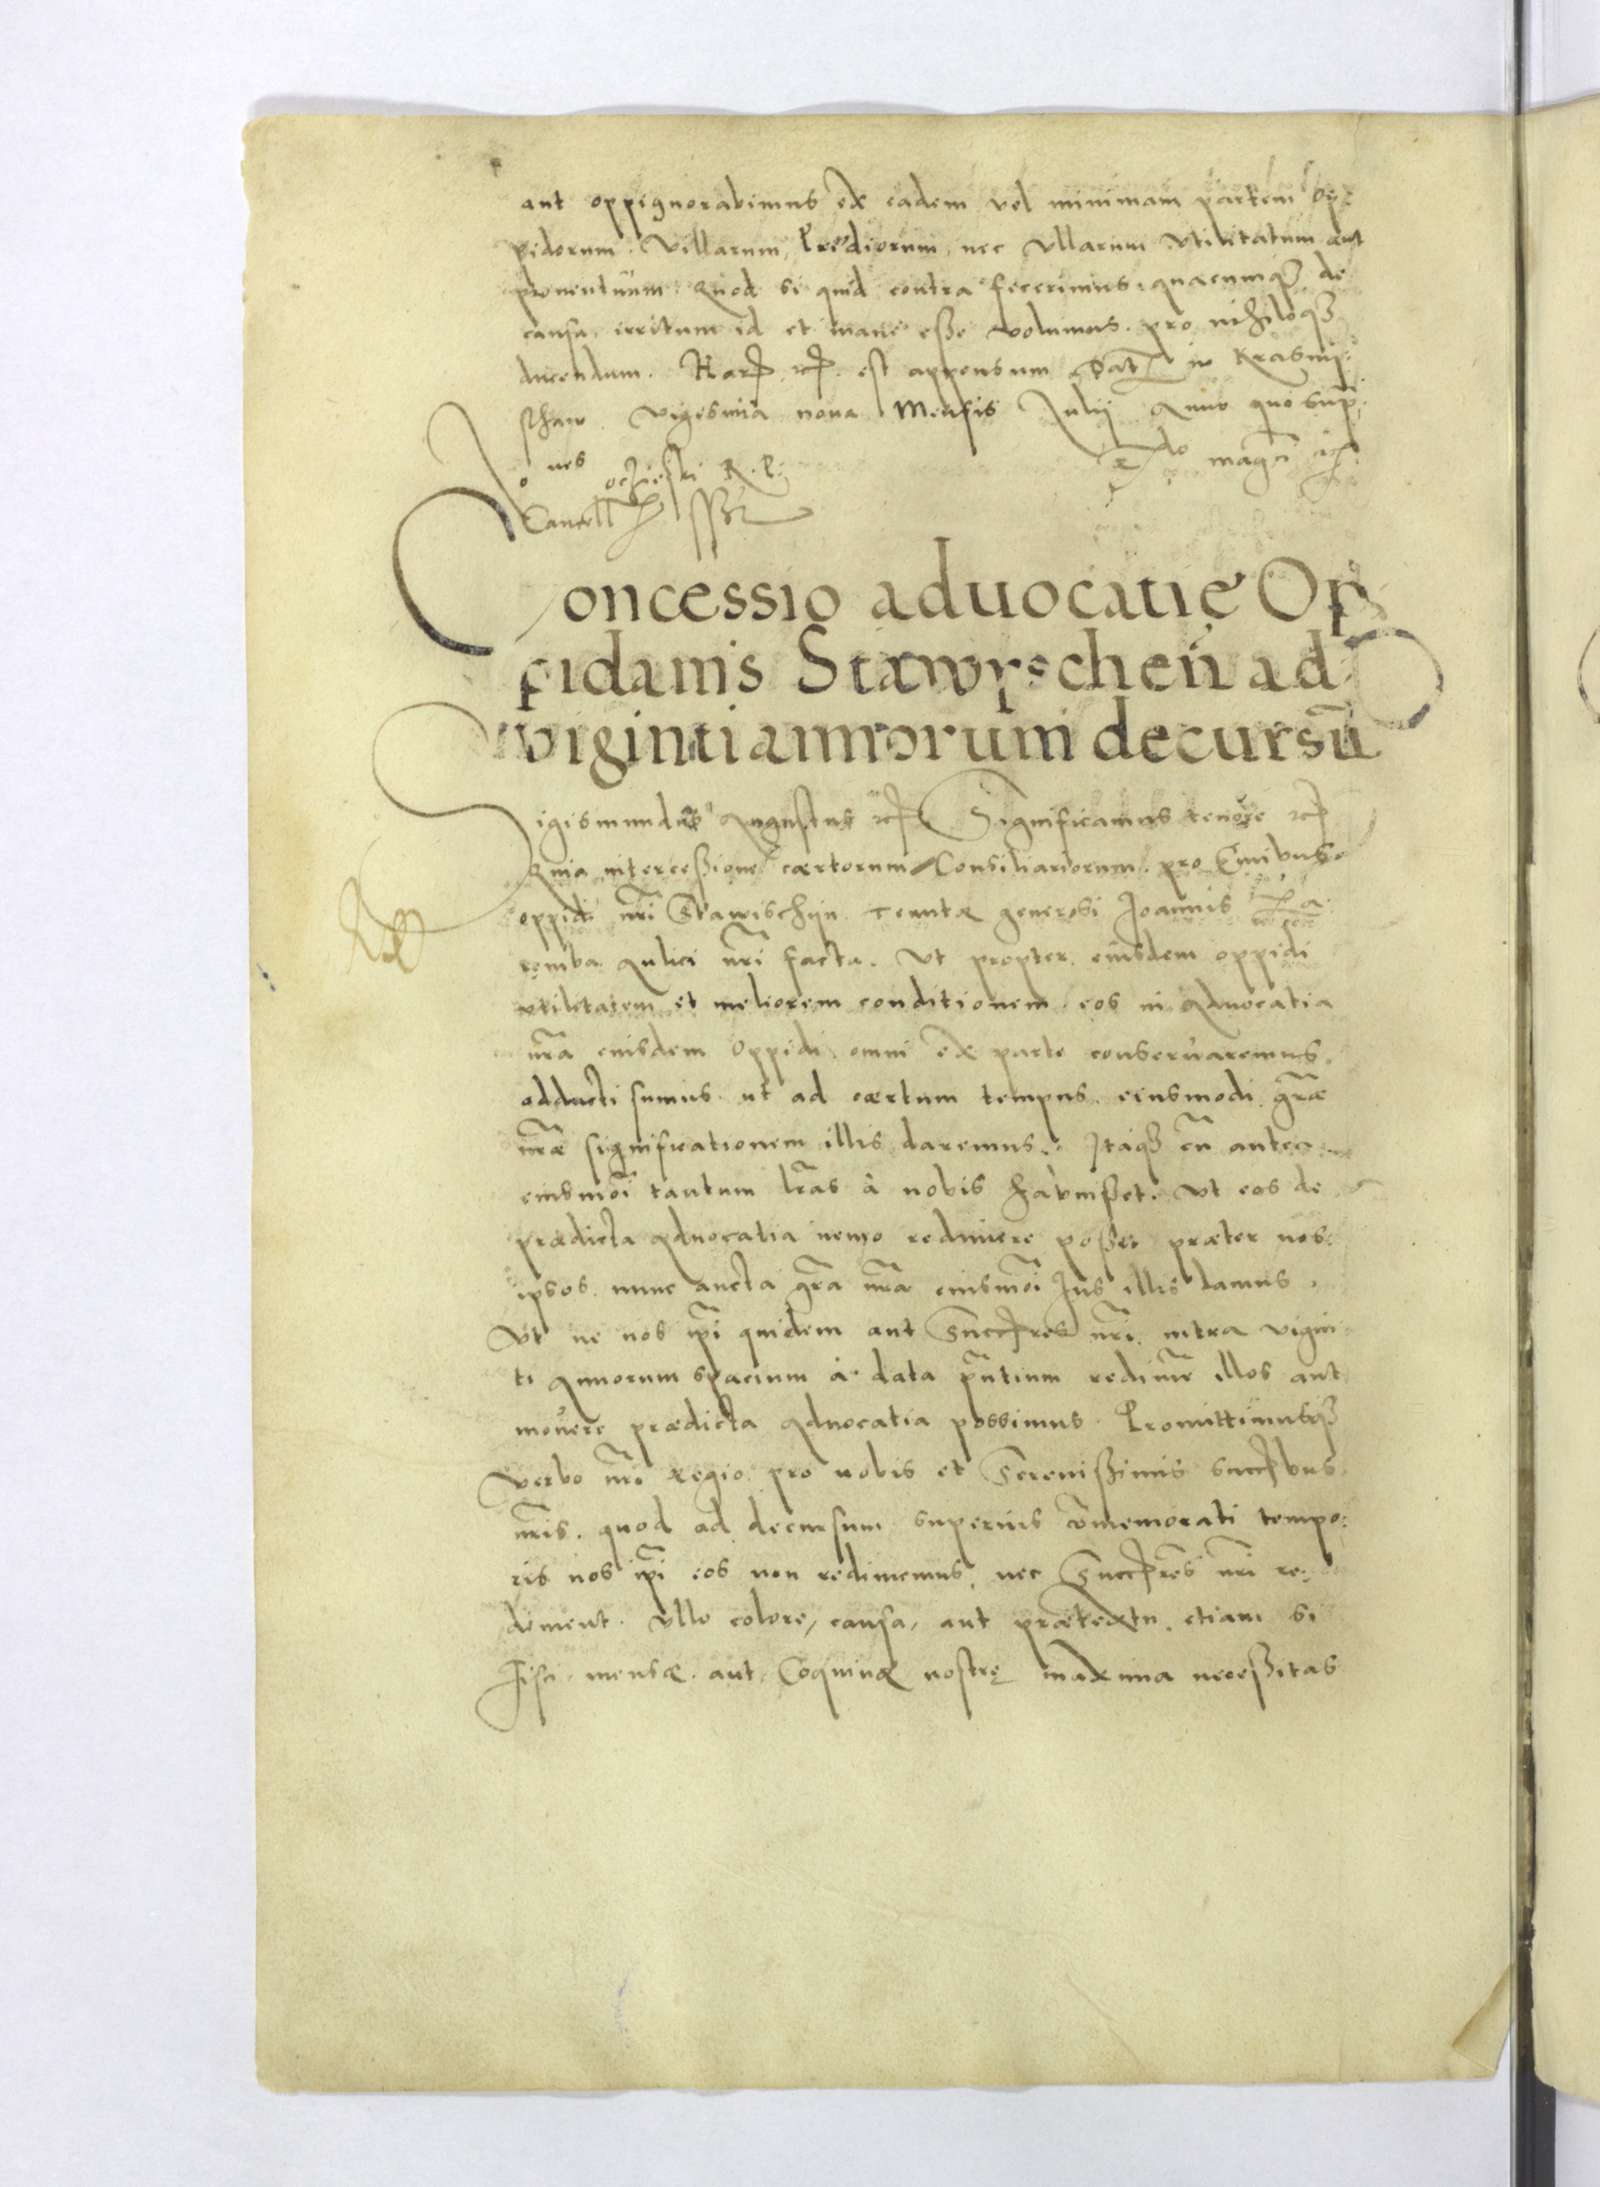 aut oppignorabimus ex eadem vel minimam partem Op:
pidorum, Villarum, Prędiorum, nec Vllarum vtilitatum aut
prouentuum. Quod si quid contra fecerimus, quacumqꝫ de
causa, irritum id et inane esse volumus, pro nihiloqꝫ
ducendum. Harꝝ rꝝ est appensum Datꝭ in Krasnij:
sthaw vigesima nona Mensis Julij Anno quo sup:
Joanes Oczieski R. P. Rdo magci
Cancell ssst
Concessio aduocatię Op
pidanis Stawyschen ad
viginti annorum decursū
Sigismundus Augustus etc Significamus tenore etc
Quia intercessione cærtorum Consiliariorum pro Ciuibus
oppidi nr̃i Stawischyn tenutæ generosi Joannis Za
remba Aulici nr̃i facta. Vt propter eiusdem oppidi
vtilitatem et meliorem conditionem eos in Aduocatia
nr̃a eiusdem Oppidi omni ex parte conseruaremus,
adducti sumus ut ad cærtum tempus eiusmodi gr̃æ
nr̃æ significationem illis daremus. Itaqꝫ cū antea
eiusmoi tantum lr̃as à nobis habuisset. Vt eos de
prædicta Aduocatia nemo redimere posset præter nos
ipsos, nunc aucta gr̃a nr̃a eiusmoi Jus illis damus.
Vt ne nos ip̃i quidem aut Succꝝres nr̃i intra vigin
ti Annorum spacium à data pñtium redimẽ illos aut
mouere prædicta Aduocatia possimus. Promittimusqꝫ
verbo nr̃o regio pro nobis et Serenissimis succꝝbus
nr̃is, quod ad decursum superius cōmemorati tempo:
ris nos ip̃i eos non redimemus, nec Succꝝres nr̃i re:
diment. Vllo colore, causa, aut prætextu, etiam si
Fisci mensæ aut Coquinæ nostrę maxima necessitas